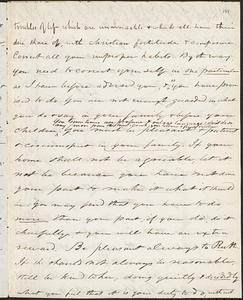 troubles of life which are unavoidable & which all have their
due share of with Christian fortitude & composure
Correct all your improper habits. By the way
you need to correct yourself in one particular
as I have before advised you, & you have prom
ised to do. You are not enough guarded in what
you do & say in your family & before your
Children. You must be pleasant & patient
& circumspect in your family. If your
home should not be agreeable, let it
not be because you have not done
your part to make it what it should
be. You may find that you have to do
more than your part, if you do, do it
cheerfully & you will have an extra
reward. Be pleasant always to Ruth.
If she should not always be reasonable,
still be kind to her, doing quietly & decidedly
what you feel that it is your duty to do, without